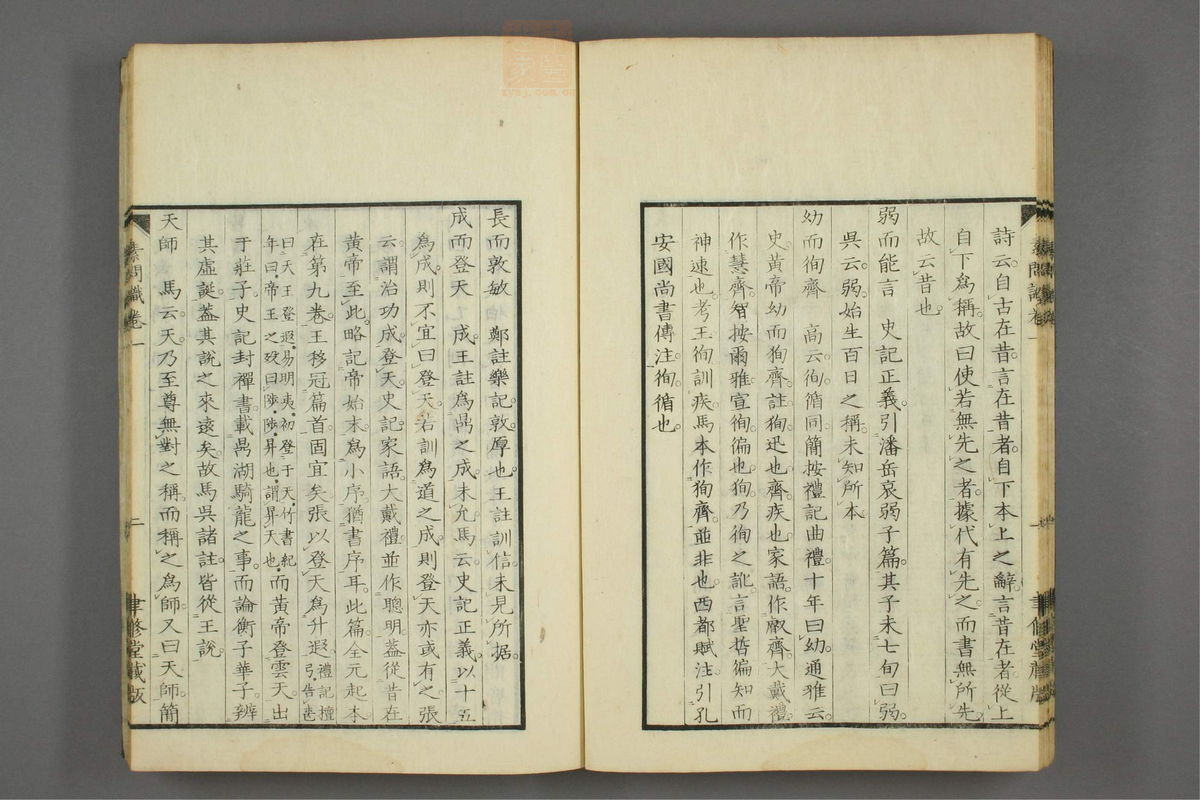 詩云。自古在昔。言在昔者。自下本上之辭。言昔在者。從上
自下爲稱。故曰使若無先之者。據代有先之。而書無所先
故云昔也。
弱而能言　史記正義。引潘岳哀弱子篇。其子未七旬曰弱
吳云。弱。始生百日之稱。未知所本
幼而徇齊　高云。徇。循同。簡按禮記曲禮。十年曰幼。通雅云
史。黄帝幼而狥齊。註狥。迅也。齊。疾也。家語。作叡齊。大戴禮。
作慧齊。智按爾雅。宣徇。徧也。狥乃徇之訛。言聖哲徧知而
神速也。考王徇訓疾。馬本作狥齊。並非也。西都賦注。引孔
安國尚書傳注。徇。循也。
長而敦敏　鄭註樂記。敦。厚也。王註訓信。未見所據。
成而登天　成。王註爲鼎之成。未允。馬云。史記正義。以十五
爲成。則不宜曰登天。若訓爲道之成。則登天亦或有之。張
云。謂治功成。登天。史記家語。大戴禮。並作聰明。蓋從昔在
黄帝至此。略記帝始末。爲小序。猶書序耳。此篇。全元起本
在第九卷。王移冠篇首。固宜矣。張以登天爲升遐。禮記檀弓。告喪
曰。天王登遐。易明夷。初登于天。竹書紀年曰。帝王之歿曰陟。陟。昇也。謂昇天也。而黄帝登雲天。出
于莊子。史記封禪書。載鼎湖騎龍之事。而論衡子華子。辨
其虛誕。蓋其說之來遠矣。故馬吳諸註。皆從王說。
天師　馬云。天乃至尊無對之稱。而稱之爲師。又曰天師。簡
素問識卷一
二
聿修堂藏版